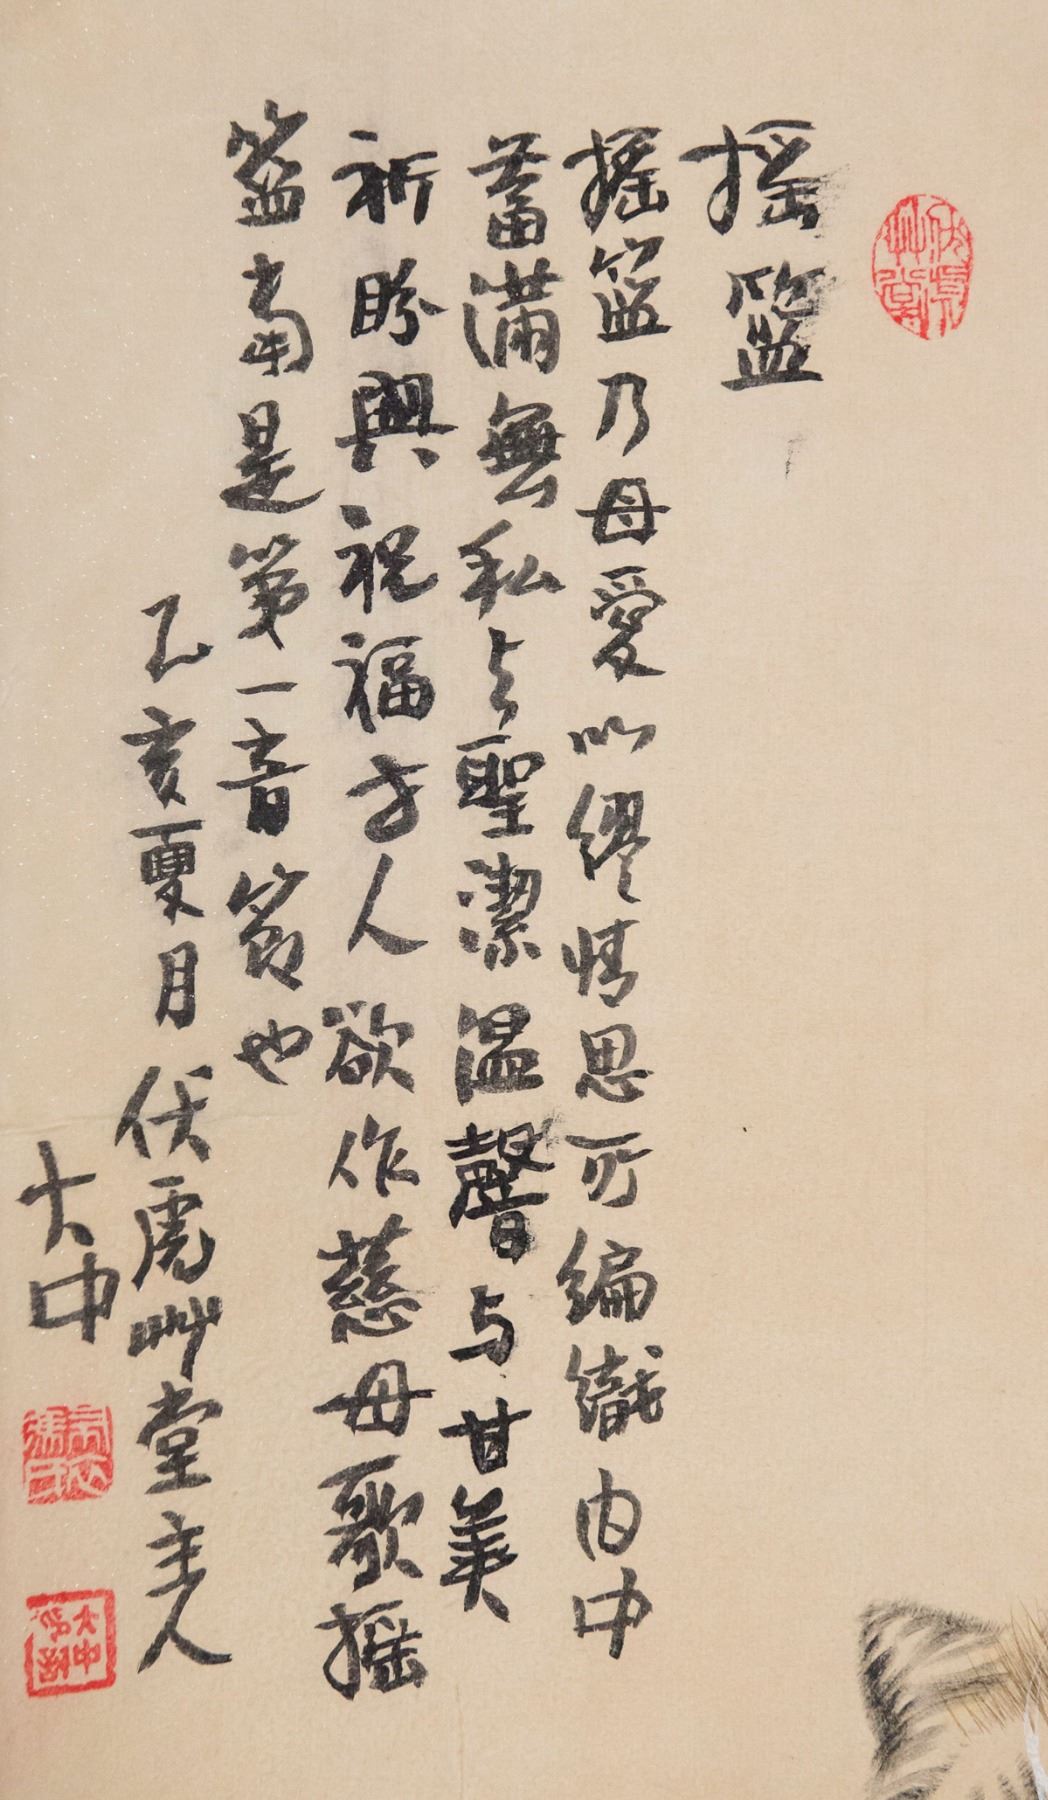 搖籃
搖籃乃母愛以繆情思所編織内中
蓄滿無私与聖潔温馨与甘美
祈盼與祝福于人欲作慈母歌搖
籃當是第一音節也
乙亥夏月伏虎艸堂主人
大中
伏虎草堂
大中